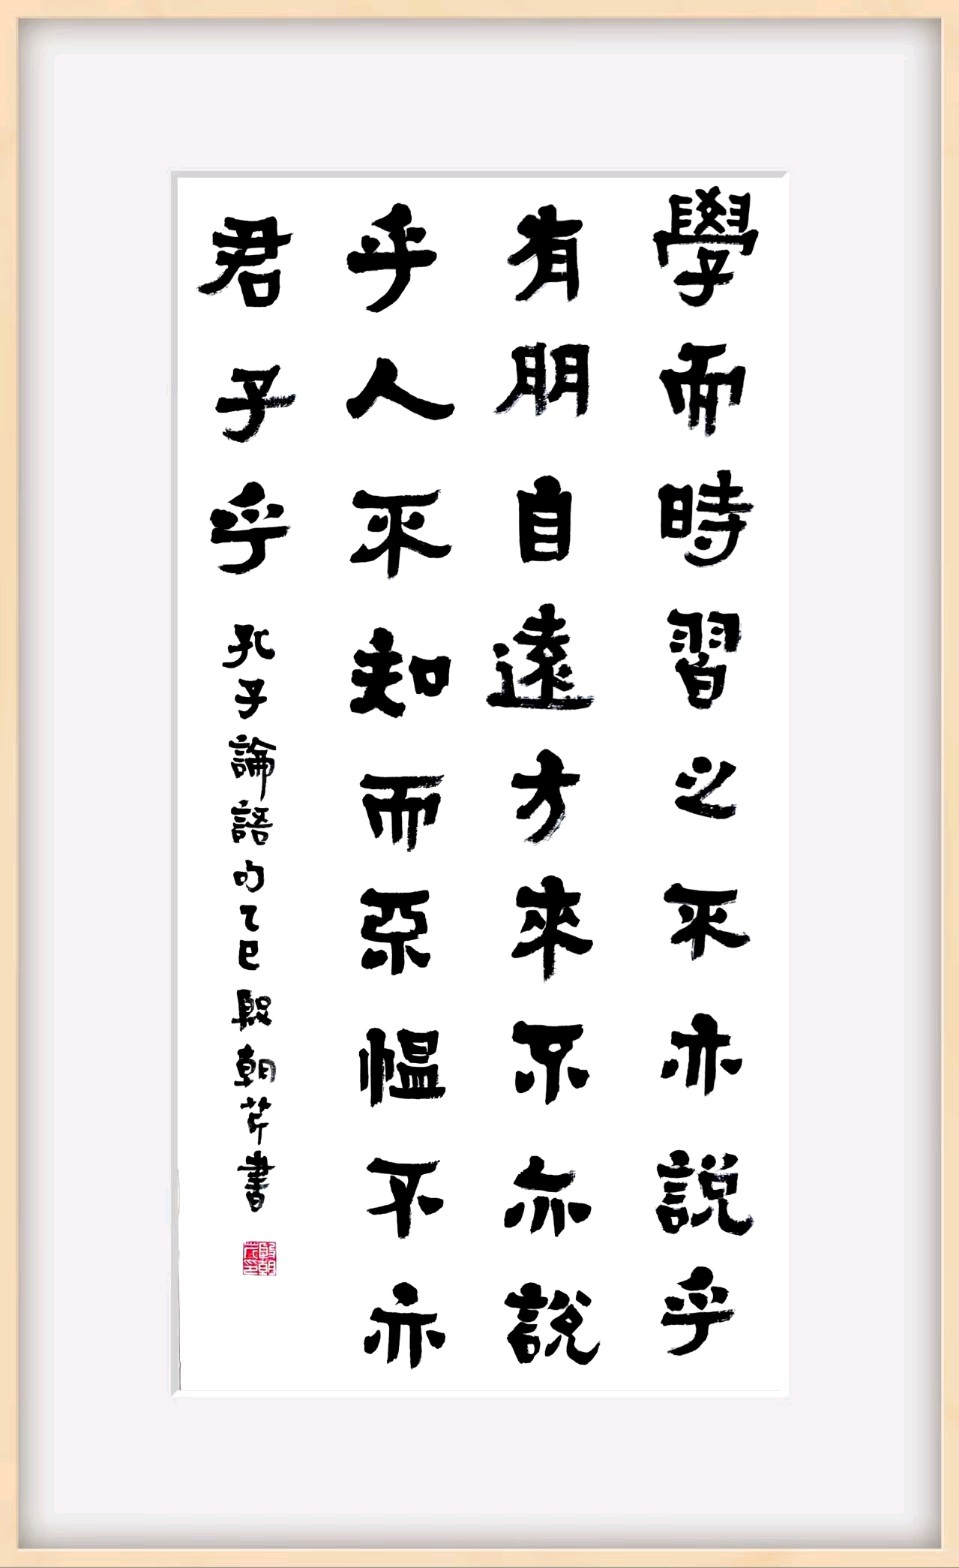 學而時習之不亦說乎
有朋自遠方來不亦說
乎人不知而不愠不亦
君子乎
孔子論語句乙巳殷朝芹書